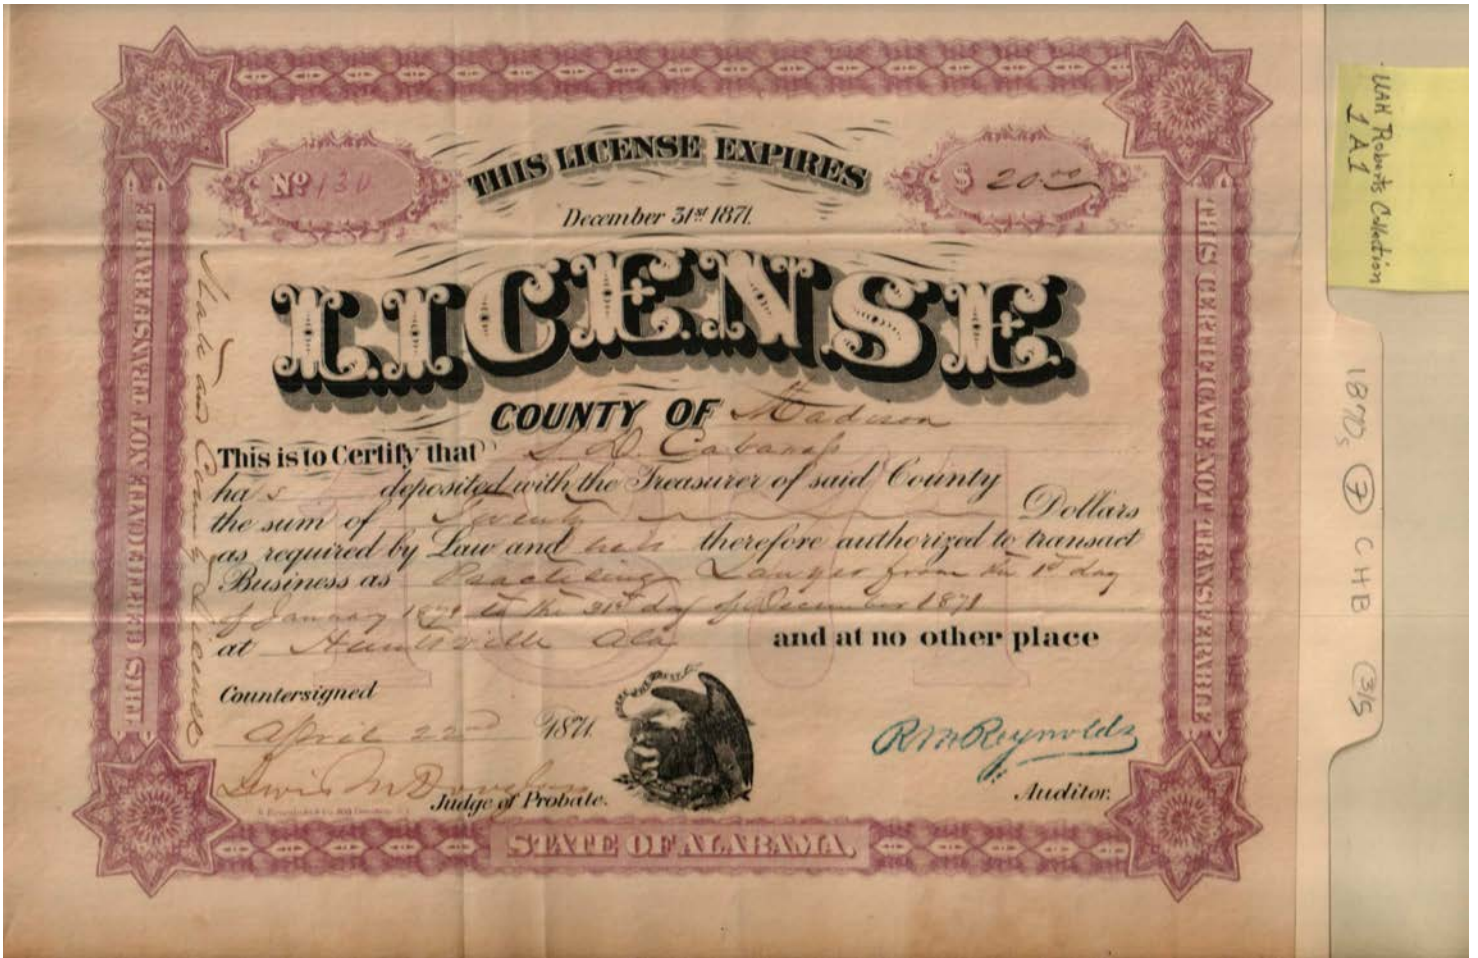 Nº 130
THIS LICENSE EXPIRES
$ 20.00
December 31st 1871.
LICENSE
COUNTY OF Madison
This is to Certify that S. D. Cabaniss
has deposited with the Treasurer of said County
the sum of Twenty Dollars
as required by Law and he is therefore authorized to transact
Business as Practising Lawyer from the 1st day
of January 1871 to the 31st day of December 1871
at Huntsville Ala and at no other place
Countersigned
April 22nd 1871.
Lewis M Douglass
Judge of Probate.
R M Reynolds
Auditor.
STATE OF ALABAMA,
THIS CERTIFICATE NOT TRANSFERABLE
State and County License
THIS CERTIFICATE NOT TRANSFERABLE
1871
UAH Roberts Collection
1 A 1
1870s 7 CHB 3/5